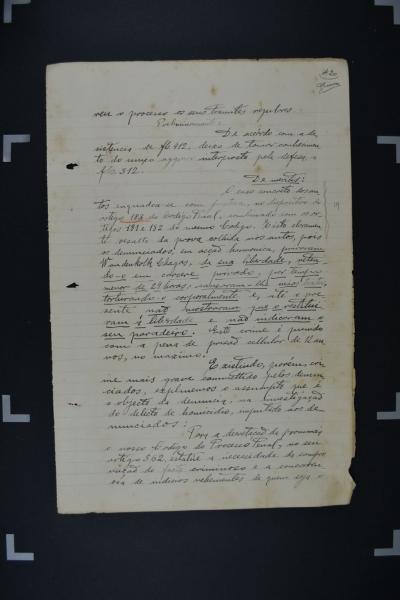 veu o processo os seus tramites regulares.
Preliminarmente:
De acôrdo com a de-
sistencia de fls 912, deixo de tomar conhecimen-
to do unico aggravo interposto pela defesa, a
fls. 312.
De meritis:
O caso concreto dos au-
tos enquadra-se com justeza, no dispositivo do
artigo 183 do Codigo Penal, combinado com os ar-
tigos 181 e 182 do mesmo Codigo. Está obviamen-
te resulta da prova colhida nos autos, pois
os denunciados, em acção harmonica, privaram
Wandenkolk Chagas, da sua liberdade, reten-
do-o em carcere privado, por tempo
menor de 24 horas; infligiram-lhe maus tratos,
torturando-o corporalmente e, até o pre-
sente não mostraram que o restitui-
ram á liberdade e não indicaram o
seu paradeiro. Este crime é punido
com a pena de prisão cellular de 12 an-
nos, no maximo.
Existindo, porém, cri-
me mais grave commettido pelos denun-
ciados, explanemos o assumpto que é
o objecto da denuncia, na investigação
do delicto de homicidio, imputado aos de-
nunciados:
Para a decretação da pronuncia
o nosso Codigo do Processo Penal, no seu
artigo 362, estatue a necessidade da compro-
vação de facto criminoso e a concorren-
cia de indicios vehementes de quem seja o